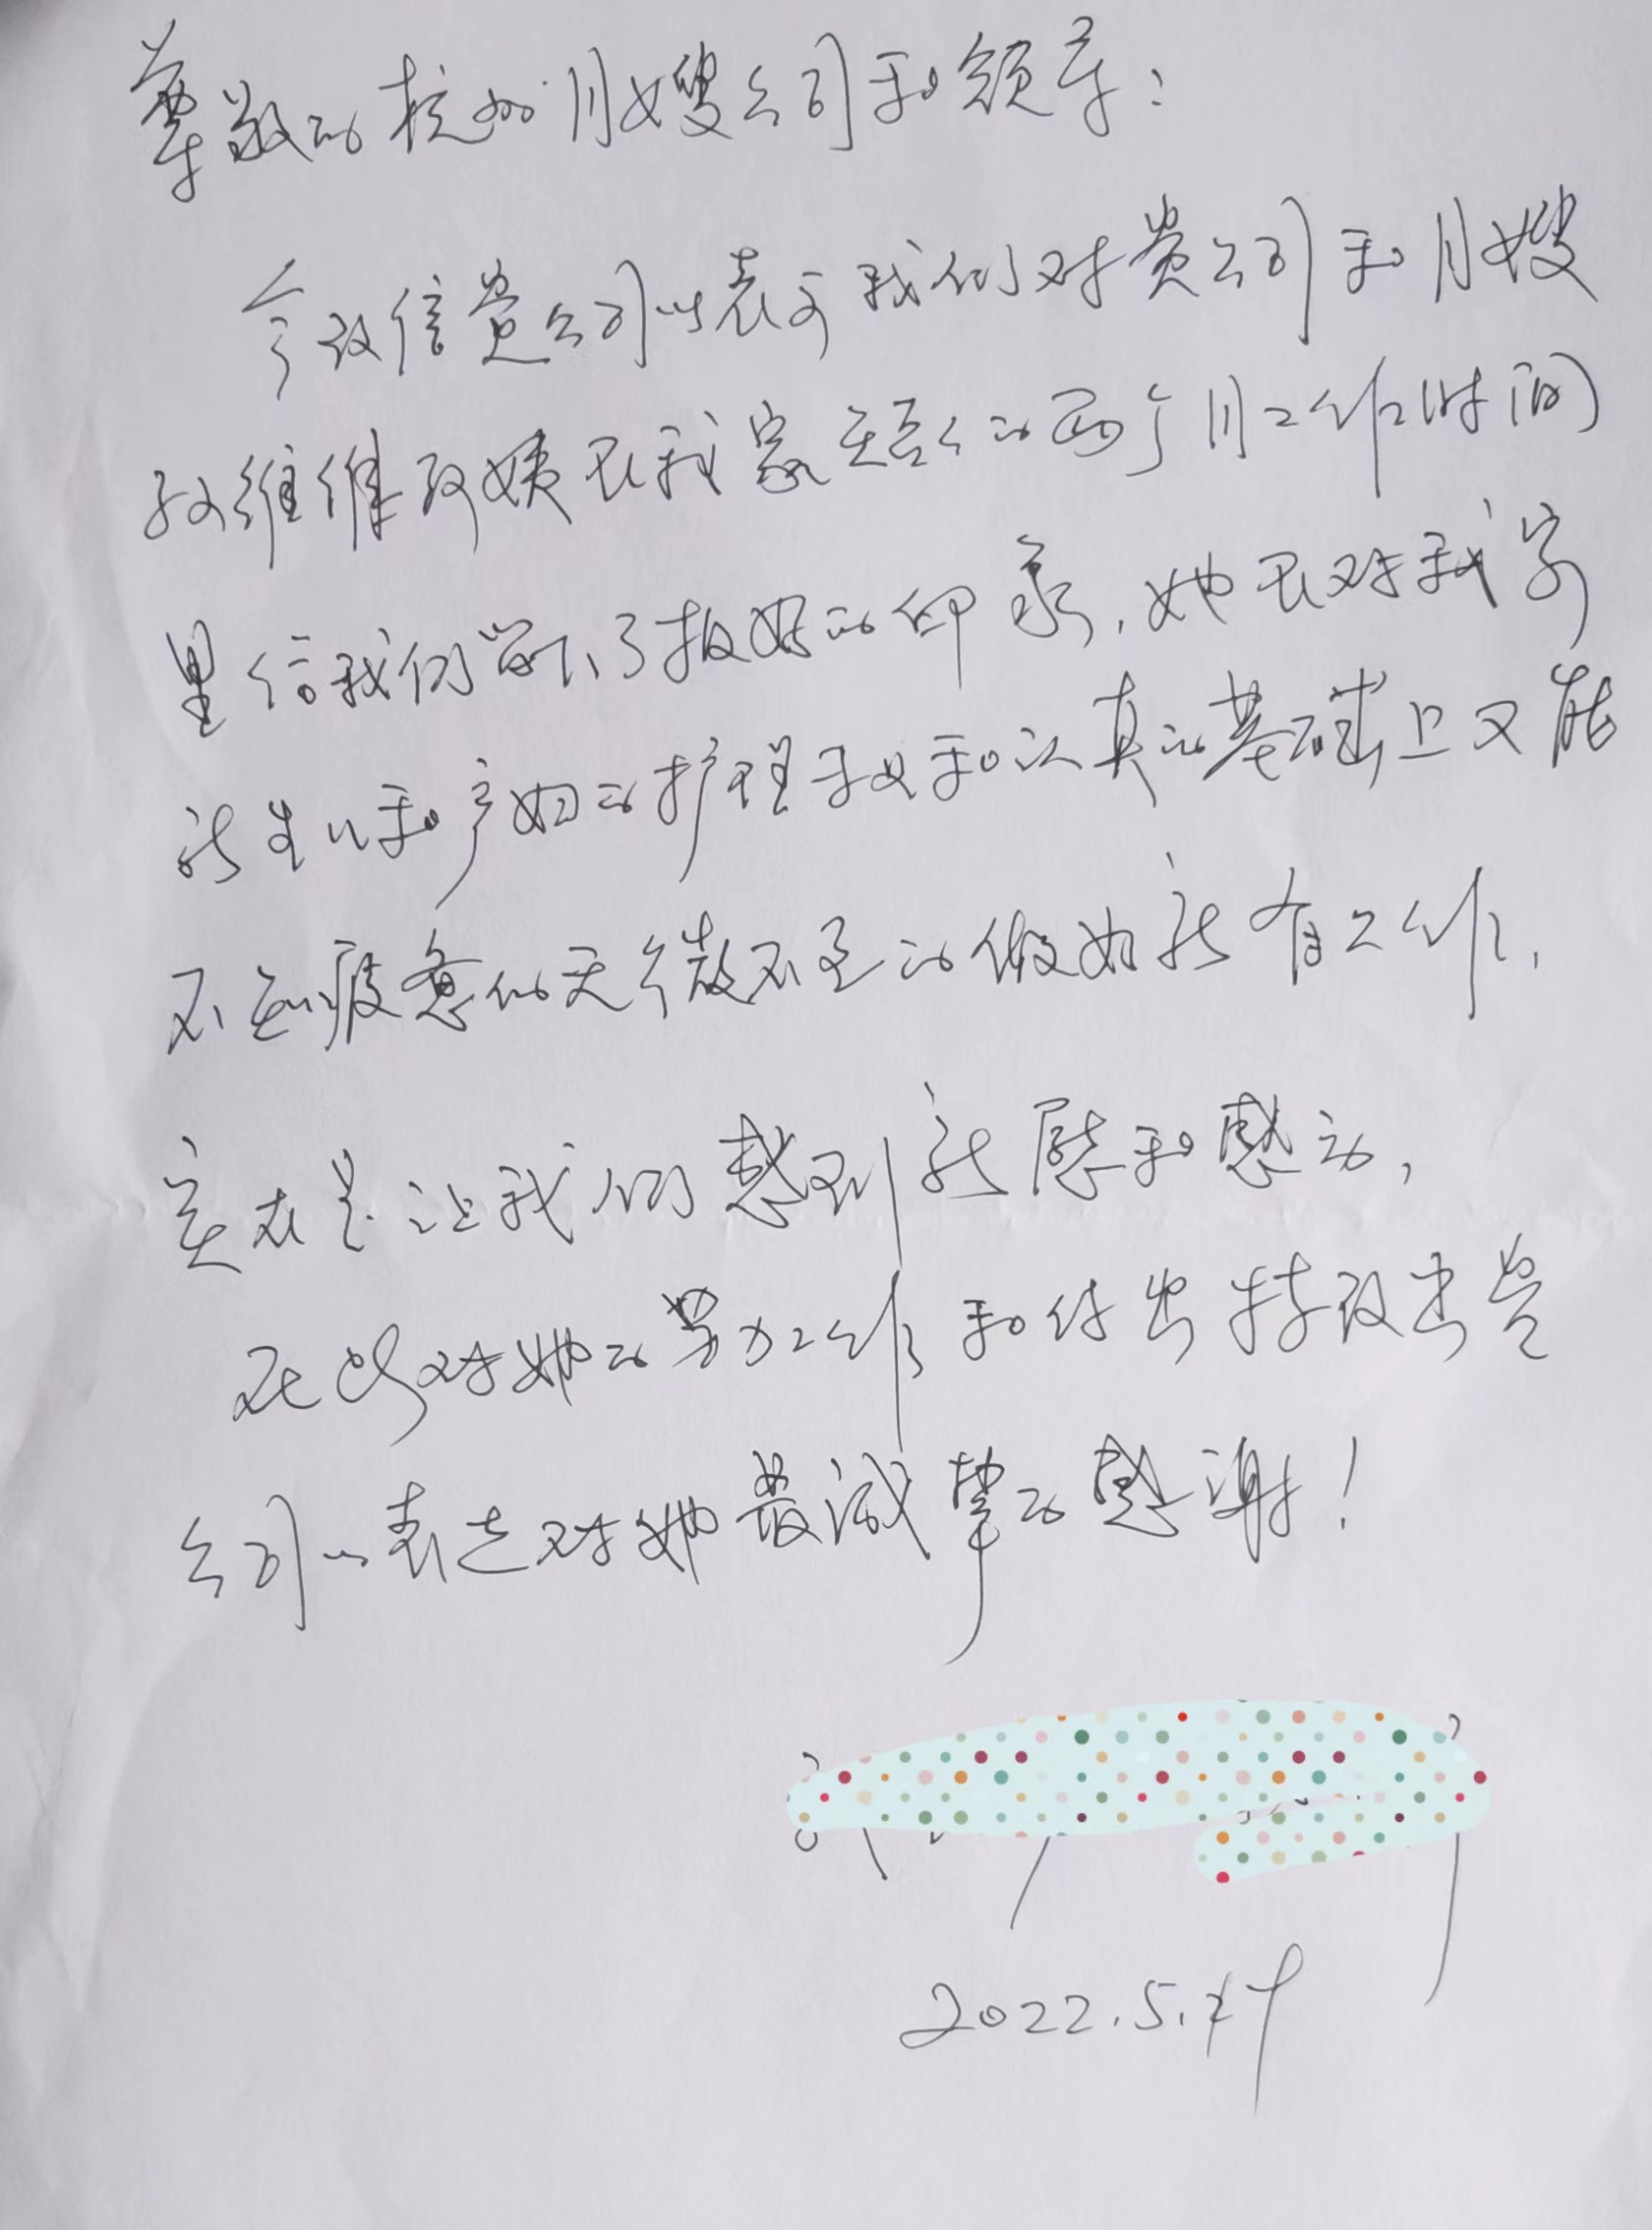 尊敬的杭州月嫂公司和领导：
今致信贵公司以表示我们对贵公司和月嫂
维维阿姨在我家短短的两个月工作时间
里给我们留下了极好的印象，她在对我家
新生儿和产妇的护理和认真的基础上又能
不知疲惫的无微不至的做好所有工作，
实在是让我们感到欣慰和感动，
在此对她的努力工作和付出特致书贵
公司以表达对她最诚挚的感谢！
2022.5.